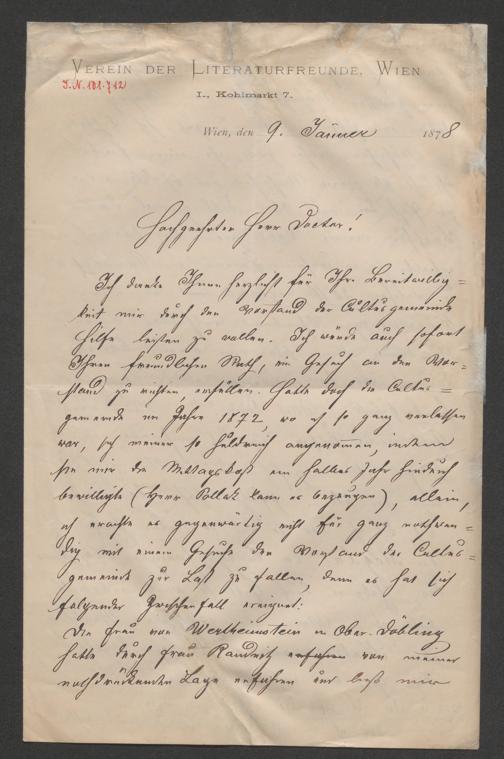 VEREIN DER LITERATURFREUNDE, WIEN
I.N. 101.712
I., Kohlmarkt 7.
Wien, den 9. Jänner 1878
Hochgeehrter Herr Doctor!
Ich danke Ihnen herzlichst für Ihre Bereitwillig=
keit mir durch den Vorstand der Cultusgemeinde
Hilfe leisten zu wollen. Ich würde auch sofort
Ihren freundlichen Rath, ein Gesuch an den Vor=
stand zu richten, erfüllen. Hatte doch die Cultus=
gemeinde im Jahre 1872, wo ich so ganz verlassen
war, sich meiner so huldreich angenommen, indem
sie mir die Mittagskost ein halbes Jahr hindurch
bewilligte (Herr Pollak kann es bezeugen), allein,
ich erachte es gegenwärtig nicht für ganz nothwen=
dig mit einem Gesuche dem Vorstand der Cultus=
gemeinde zur Last zu fallen, denn es hat sich
folgender Zwischenfall ereignet:
Die Frau von Wertheimstein in Ober-Döbling
hatte durch Frau erfahren von meiner
Lage erfahren und ließ mir